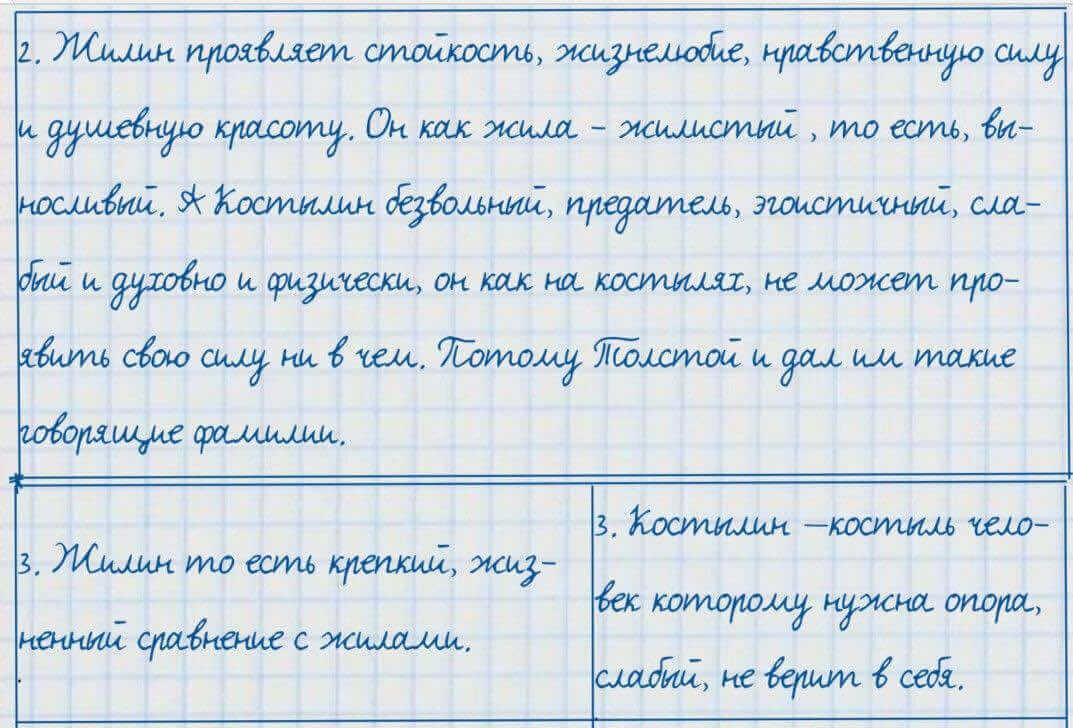 2. Жилин проявляет стойкость, жизнелюбие, нравственную силу
и душевную красоту. Он как жила – жилистый , то есть, вы-
носливый. А Костылин безвольный, предатель, эгоистичный, сла-
бый и духовно и физически, он как на костылях, не может про-
явить свою силу ни в чем. Потому Толстой и дал им такие
говорящие фамилии.
3. Жилин то есть крепкий, жиз-
ненный сравнение с жилами.
3. Костылин – костыль чело-
век которому нужна опора,
слабый, не верит в себя.